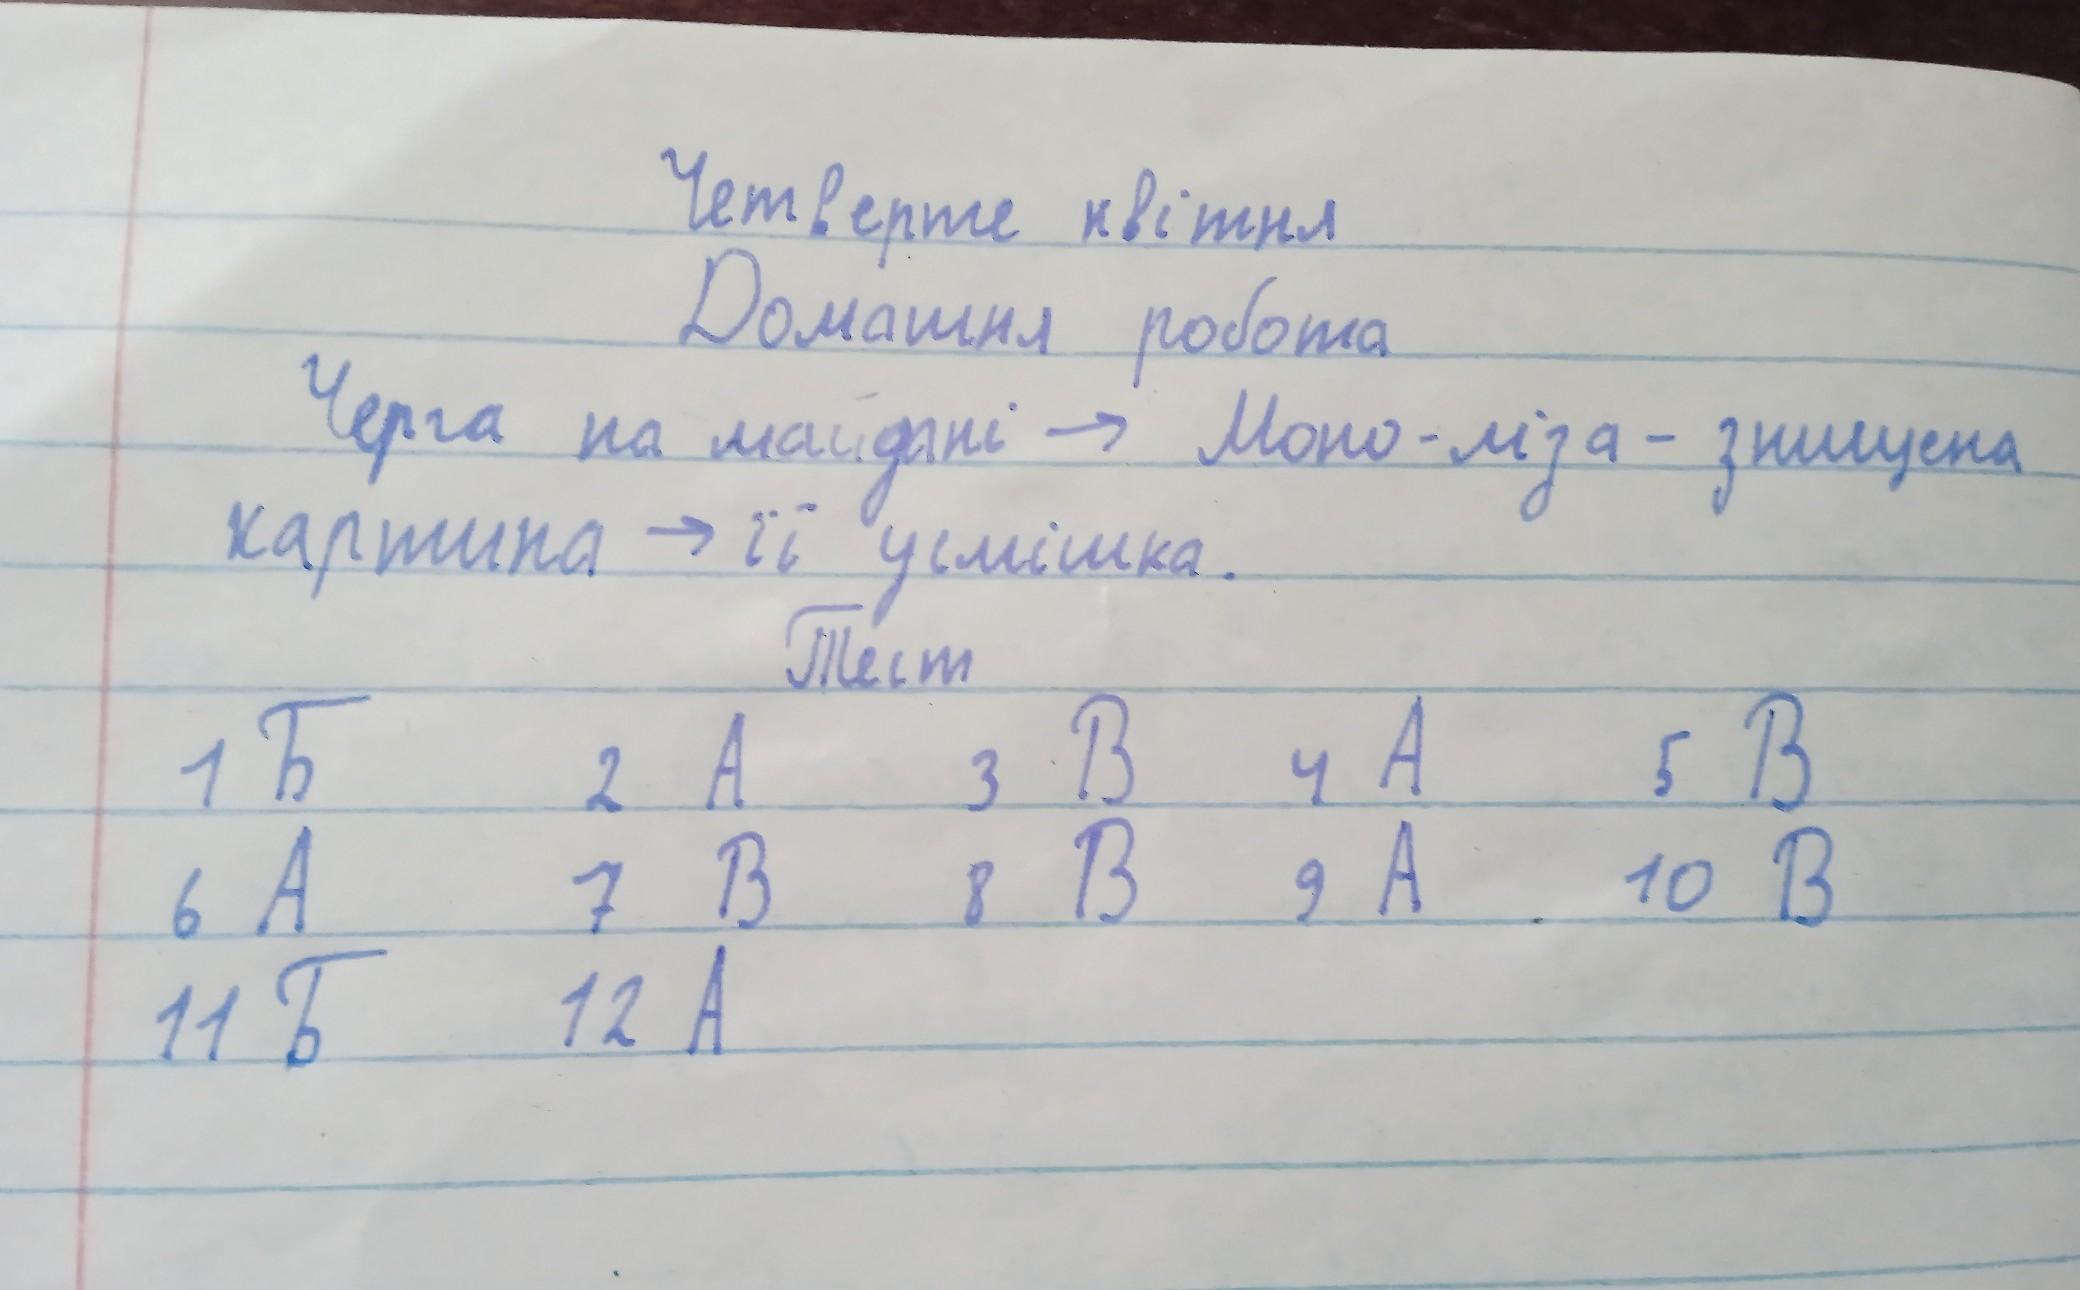 Четверте квітня
Домашня робота
Черга на майдані → Моно-ліза - знищена
картина → її усмішка.
Тест
1 Б 2 А 3 В 4 А 5 В
6 А 7 В 8 В 9 А 10 В
11 Б 12 А